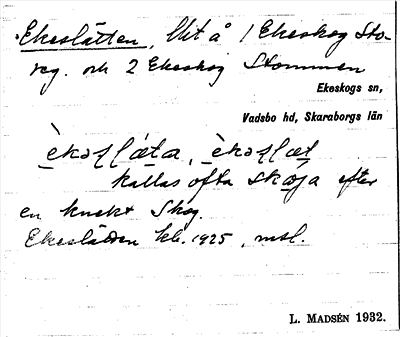 Ekeslätten, litt å 1 Ekeskog Sto-
reg. och 2 Ekeskog Stommen
Ekeskogs sn,
Vadsbo hd, Skaraborgs län
kallas ofta skoja efter
en knekt Skog.
Ekeslätten kb. 1925, msl.
L. MADSÉN 1932.